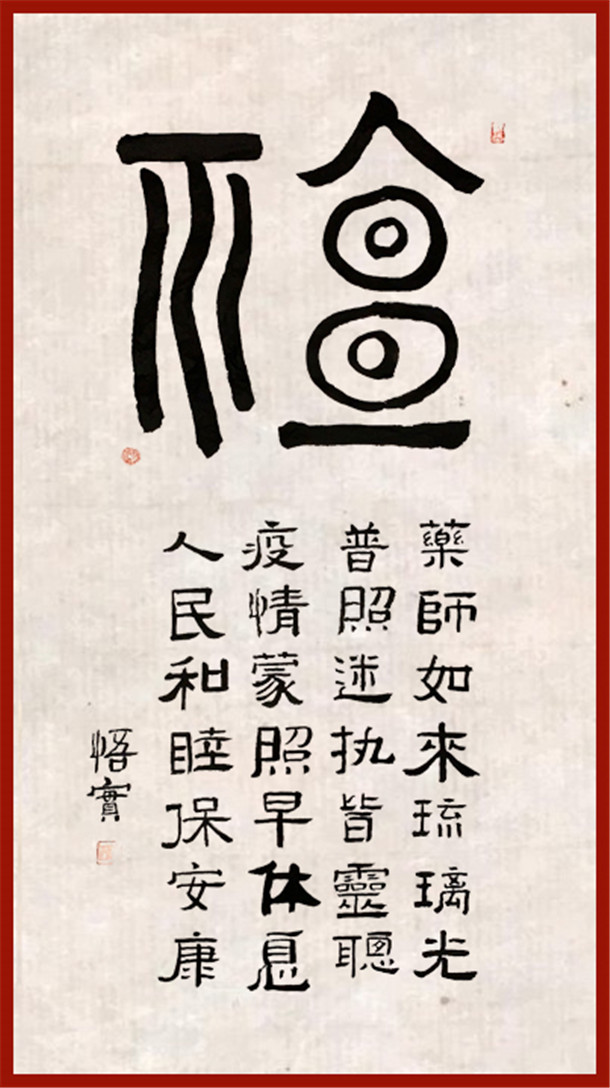 藥師如來琉璃光
普照迷执皆靈聰
疫情蒙照早休息
人民和睦保安康
悟實